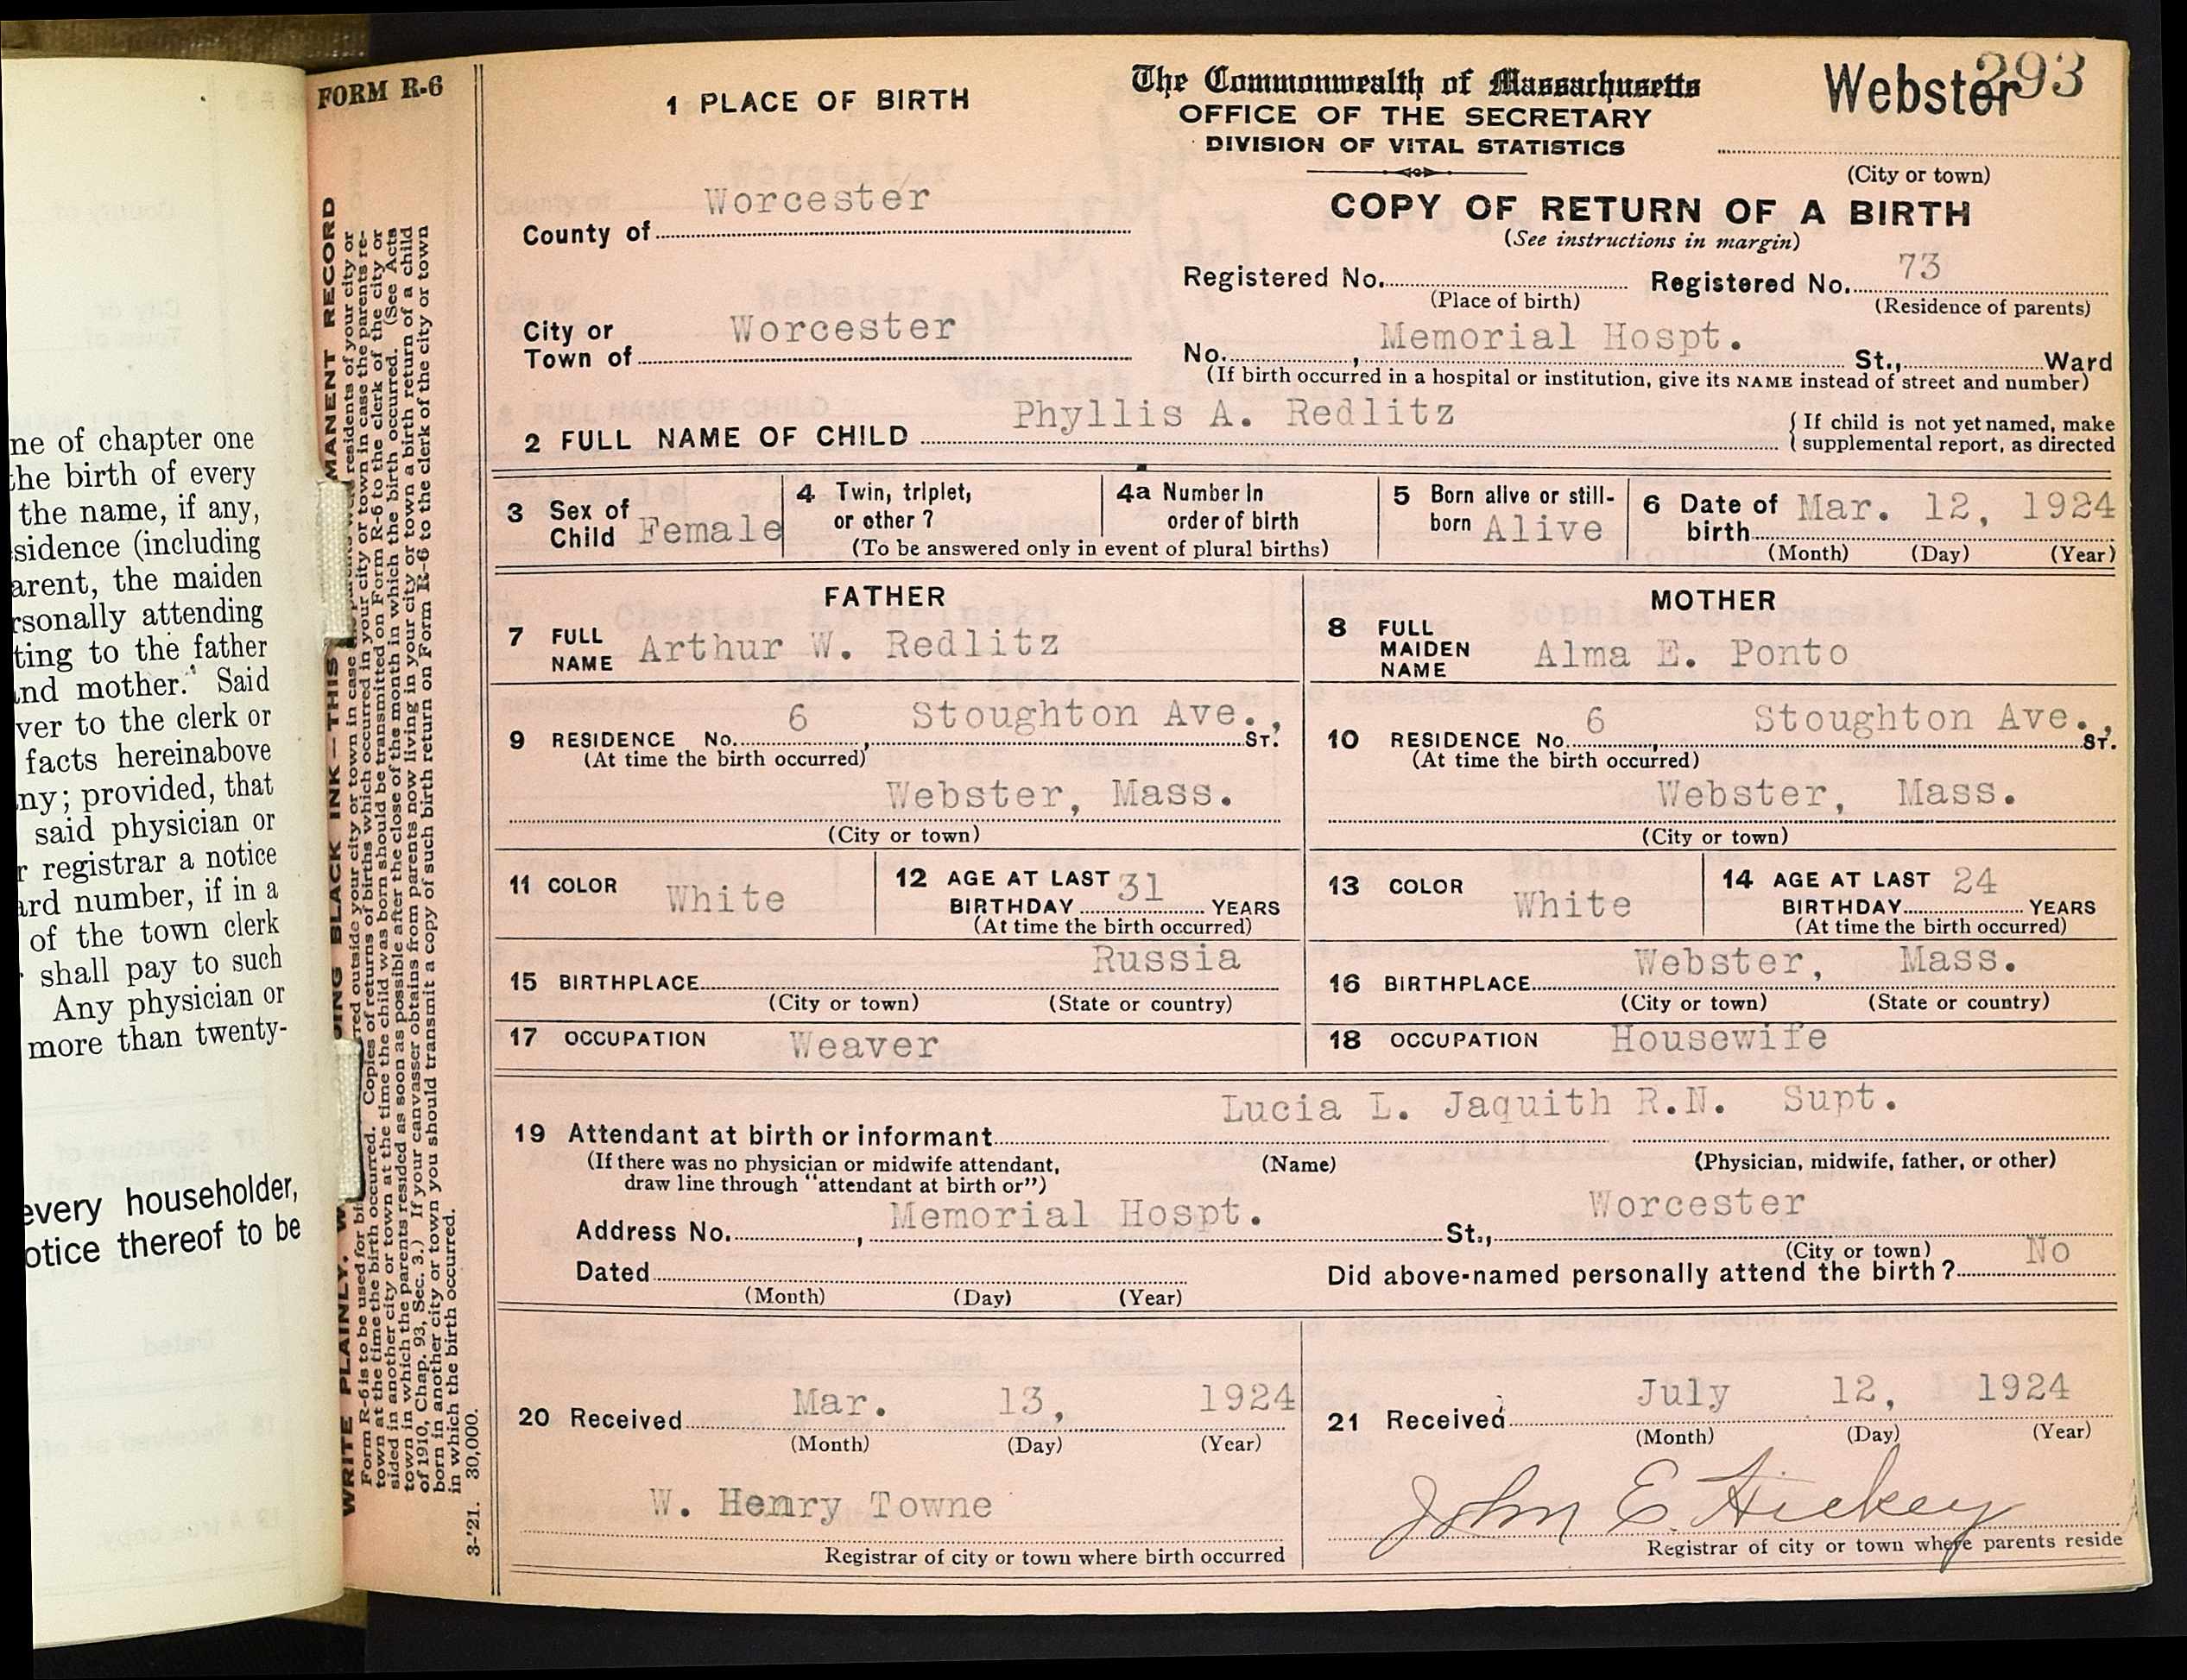 ne of chapter one
the birth of every
the name, if any,
sidence (including
arent, the maiden
rsonally attending
ting to the father
nd mother. Said
ver to the clerk or
facts hereinabove
ny; provided, that
said physician or
r registrar a notice
ard number, if in a
of the town clerk
shall pay to such
Any physician or
more than twenty-
every householder,
otice thereof to be
FORM R-6
WRITE PLAINLY, BLACK INK—THIS MANENT RECORD
Form R-6 is to be used for outside your city or town in case residents of your city or
town at the time the birth occurred. Copies of returns of births which occurred in your city or town in case the parents re-
sided in another city or town at the time the child was born should be transmitted on Form R-6 to the clerk of the city or
town in which the parents resided as soon as possible after the close of the month in which the birth occurred. (See Acts
of 1910, Chap. 93, Sec. 3.) If your canvasser obtains from parents now living in your city or town a birth return of a child
born in another city or town you should transmit a copy of such birth return on Form R-6 to the clerk of the city or town
in which the birth occurred.
3-'21. 30,000.
1 PLACE OF BIRTH
The Commonwealth of Massachusetts
OFFICE OF THE SECRETARY
DIVISION OF VITAL STATISTICS
Webster 293
(City or town)
County of Worcester
COPY OF RETURN OF A BIRTH
(See instructions in margin)
Registered No. Registered No. 73
(Place of birth) (Residence of parents)
City or
Town of Worcester
No. , Memorial Hospt. St., Ward
(If birth occurred in a hospital or institution, give its NAME instead of street and number)
2 FULL NAME OF CHILD Phyllis A. Redlitz
{ If child is not yet named, make
{ supplemental report, as directed
3 Sex of
Child Female
4 Twin, triplet,
or other ?
4a Number in
order of birth
(To be answered only in event of plural births)
5 Born alive or still-
born Alive
6 Date of
birth Mar. 12, 1924
(Month) (Day) (Year)
FATHER
7 FULL
NAME Arthur W. Redlitz
9 RESIDENCE No. 6 , Stoughton Ave., ST.
(At time the birth occurred)
Webster, Mass.
(City or town)
11 COLOR White
12 AGE AT LAST
BIRTHDAY 31 YEARS
(At time the birth occurred)
15 BIRTHPLACE Russia
(City or town) (State or country)
17 OCCUPATION Weaver
MOTHER
8 FULL
MAIDEN
NAME Alma E. Ponto
10 RESIDENCE No. 6 , Stoughton Ave., ST.
(At time the birth occurred)
Webster, Mass.
(City or town)
13 COLOR White
14 AGE AT LAST
BIRTHDAY 24 YEARS
(At time the birth occurred)
16 BIRTHPLACE Webster, Mass.
(City or town) (State or country)
18 OCCUPATION Housewife
19 Attendant at birth or informant Lucia L. Jaquith R.N. Supt.
(If there was no physician or midwife attendant,
draw line through "attendant at birth or")
(Name) (Physician, midwife, father, or other)
Address No. , Memorial Hospt. St., Worcester
(City or town)
Dated
(Month) (Day) (Year)
Did above-named personally attend the birth? No
20 Received Mar. 13, 1924
(Month) (Day) (Year)
W. Henry Towne
Registrar of city or town where birth occurred
21 Received July 12, 1924
(Month) (Day) (Year)
John E. Hickey
Registrar of city or town where parents reside